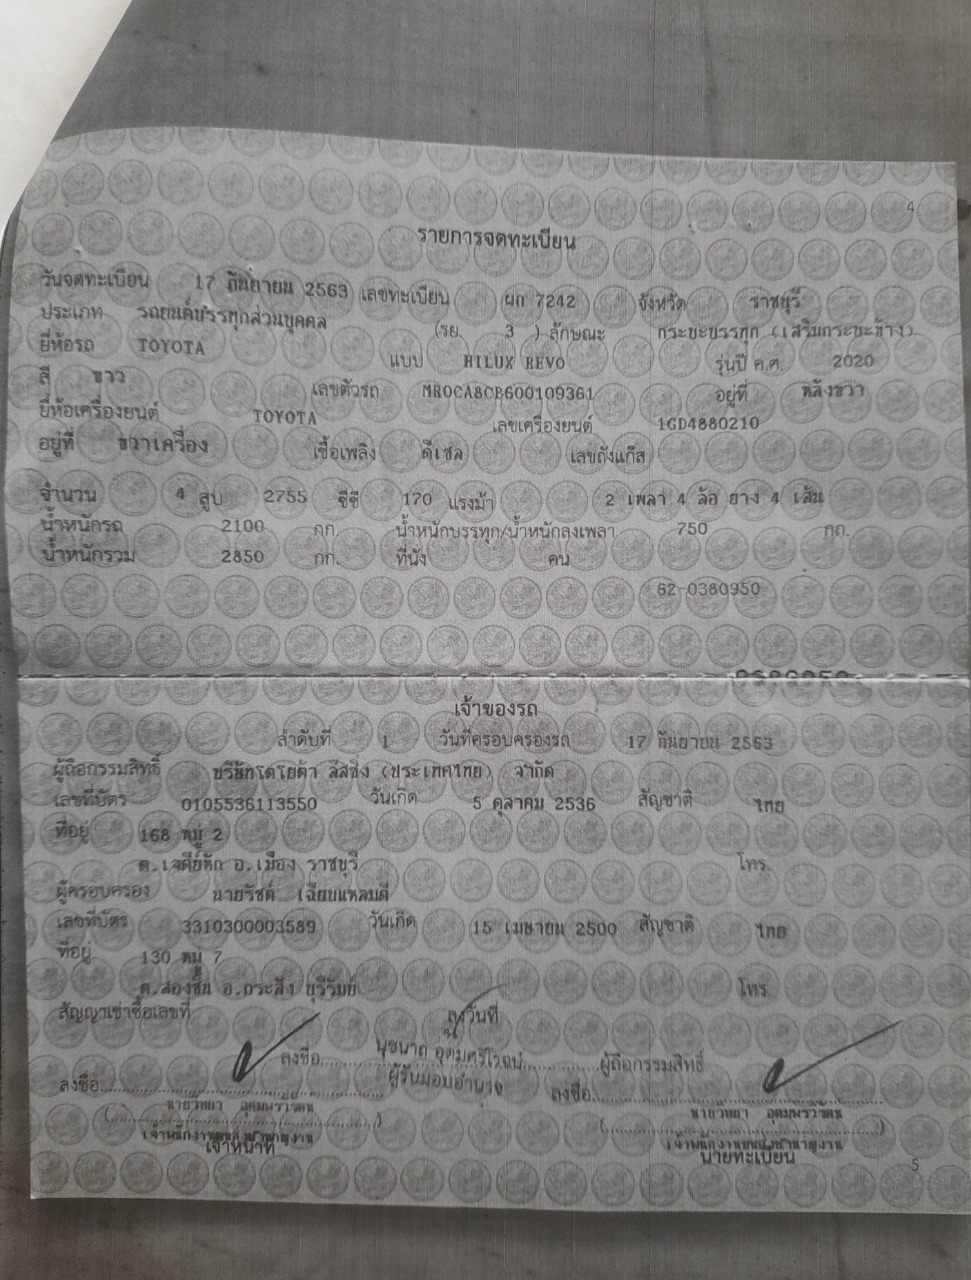 4
รายการจดทะเบียน
วันจดทะเบียน 17 กันยายน 2563 เลขทะเบียน ผก 7242 จังหวัด ราชบุรี
ประเภท รถยนต์บรรทุกส่วนบุคคล (รย. 3 ) ลักษณะ กระบะบรรทุก (เสริมกระบะข้าง)
ยี่ห้อรถ TOYOTA แบบ HILUX REVO รุ่นปี ค.ศ. 2020
สี ขาว เลขตัวรถ MR0CA8CB600109361 อยู่ที่ หลังขวา
ยี่ห้อเครื่องยนต์ TOYOTA เลขเครื่องยนต์ 1GD4880210
อยู่ที่ ขวาเครื่อง เชื้อเพลิง ดีเซล เลขถังแก๊ส
จำนวน 4 สูบ 2755 ซีซี 170 แรงม้า 2 เพลา 4 ล้อ ยาง 4 เส้น
น้ำหนักรถ 2100 กก. น้ำหนักบรรทุก/น้ำหนักลงเพลา 750 กก.
น้ำหนักรวม 2850 กก. ที่นั่ง คน
62-0380950
เจ้าของรถ
ลำดับที่ 1 วันที่ครอบครองรถ 17 กันยายน 2563
ผู้ถือกรรมสิทธิ์ บริษัทโตโยต้า ลีสซิ่ง (ประเทศไทย) จำกัด
เลขที่บัตร 0105536113550 วันเกิด 5 ตุลาคม 2536 สัญชาติ ไทย
ที่อยู่ 168 หมู่ 2
ต.เจดีย์หัก อ.เมือง ราชบุรี โทร.
ผู้ครอบครอง นายรัชต์ เฉียบแหลมดี
เลขที่บัตร 3310300003589 วันเกิด 15 เมษายน 2500 สัญชาติ ไทย
ที่อยู่ 130 หมู่ 7
ต.สองชั้น อ.กระสัง บุรีรัมย์ โทร
สัญญาเช่าซื้อเลขที่ ลงวันที่
ลงชื่อ นุชนาถ อุดมศรีโรจน์ ผู้ถือกรรมสิทธิ์
ผู้รับมอบอำนาจ
ลงชื่อ ลงชื่อ
นายวิทยา นายวิทยา
เจ้าหน้าที่ นายทะเบียน
5